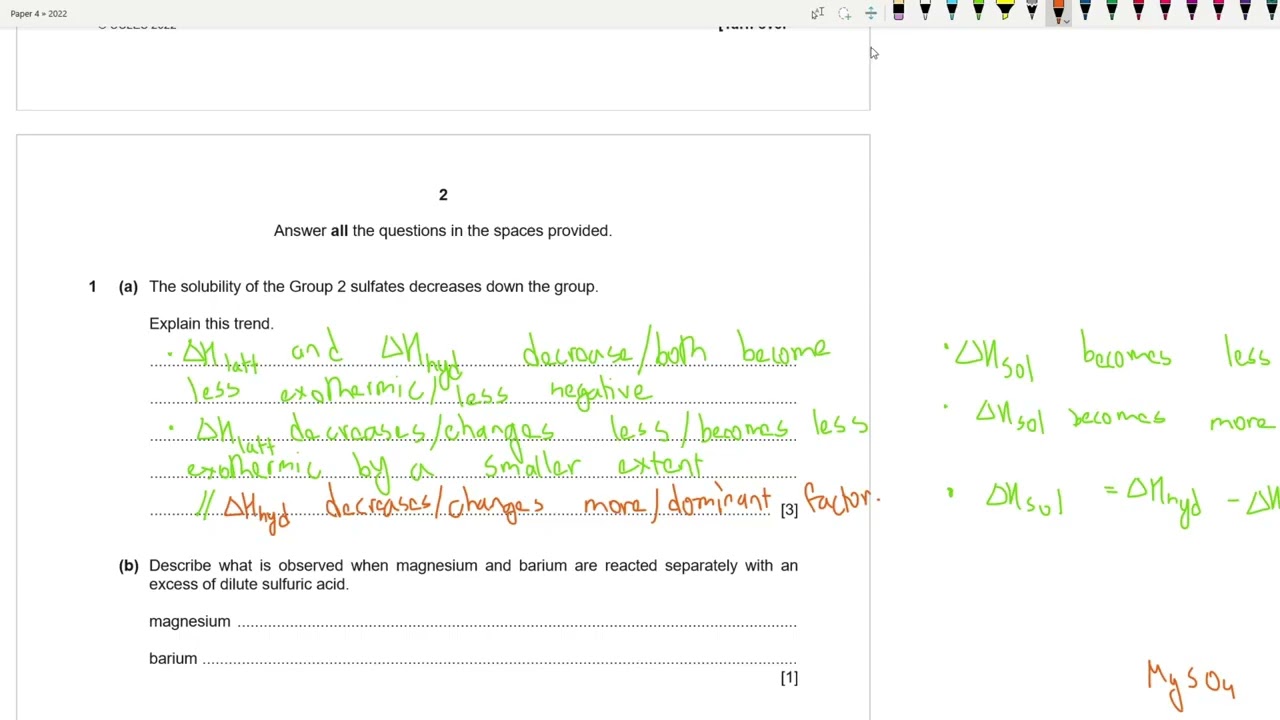 Paper 4 » 2022
2
Answer all the questions in the spaces provided.
1 (a) The solubility of the Group 2 sulfates decreases down the group.
Explain this trend.
· ΔHlatt and ΔHhyd decrease/both become
less exothermic/less negative
· ΔHlatt decreases/changes less/becomes less
exothermic by a smaller extent
// ΔHhyd decreases/changes more/dominant factor.
[3]
· ΔHsol becomes less
· ΔHsol becomes more
· ΔHsol = ΔHhyd - ΔH
(b) Describe what is observed when magnesium and barium are reacted separately with an
excess of dilute sulfuric acid.
magnesium
barium
[1]
MgSO4